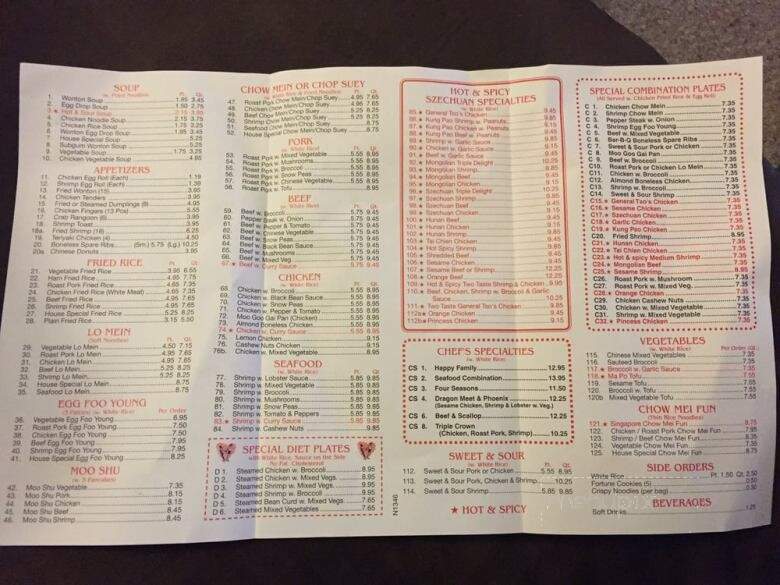 SOUP
(w. Fried Noodles) Pt. Qt.
1. Wonton Soup 1.95 3.45
2. Egg Drop Soup 1.50 2.75
3. ★ Hot & Sour Soup 2.15 3.95
4. Chicken Noodle Soup 2.15 3.75
5. Chicken Rice Soup 1.75 3.25
6. Wonton Egg Drop Soup 1.95 3.45
7. House Special Soup 5.25
8. Subgum Wonton Soup 5.25
9. Vegetable Soup 1.75 3.25
10. Chicken Vegetable Soup 4.85
APPETIZERS
11. Chicken Egg Roll (Each) 1.19
12. Shrimp Egg Roll (Each) 1.39
13. Fried Wonton (15) 3.95
14. Chicken Tenders 3.95
15. Fried or Steamed Dumplings (8) 4.95
16. Chicken Fingers (13 Pcs) 5.55
17. Crab Rangoon (6) 3.95
18. Shrimp Toast 3.95
18a. Fried Shrimp (18) 6.25
19. Teriyaki Chicken (4) 4.50
20. Boneless Spare Ribs (Sm.) 5.75 (Lg.) 10.25
20a. Chinese Donuts 3.95
FRIED RICE
Pt. Qt.
21. Vegetable Fried Rice 3.95 6.55
22. Ham Fried Rice 4.65 7.75
23. Roast Pork Fried Rice 4.65 7.35
24. Chicken Fried Rice (White Meat) 4.65 7.35
25. Beef Fried Rice 4.95 7.65
26. Shrimp Fried Rice 4.95 7.65
27. House Special Fried Rice 5.25 8.25
28. Plain Fried Rice 3.15 5.50
LO MEIN
(Soft Noodles) Pt. Qt.
29. Vegetable Lo Mein 4.50 7.15
30. Roast Pork Lo Mein 4.95 7.65
31. Chicken Lo Mein 4.95 7.65
32. Beef Lo Mein 5.25 8.25
33. Shrimp Lo Mein 5.25 8.25
34. House Special Lo Mein 8.75
35. Seafood Lo Mein 8.75
EGG FOO YOUNG
(3 Patties) (w. White Rice) Per Order
36. Vegetable Egg Foo Young 6.95
37. Roast Pork Egg Foo Young 7.50
38. Chicken Egg Foo Young 7.50
39. Beef Egg Foo Young 7.95
40. Shrimp Egg Foo Young 7.95
41. House Special Egg Foo Young 8.25
MOO SHU
(w. 5 Pancakes)
42. Moo Shu Vegetable 7.35
43. Moo Shu Pork 8.15
44. Moo Shu Chicken 8.15
45. Moo Shu Beef 8.45
46. Moo Shu Shrimp 8.45
CHOW MEIN OR CHOP SUEY
(White Rice & Fried Noodles) Pt. Qt.
47. Roast Pork Chow Mein/Chop Suey 4.95 7.65
48. Chicken Chow Mein/Chop Suey 4.95 7.65
49. Beef Chow Mein/Chop Suey 5.25 8.25
50. Shrimp Chow Mein/Chop Suey 5.25 8.25
51. Seafood Chow Mein/Chop Suey 8.75
52. House Special Chow Mein/Chop Suey 8.75
PORK
(w. White Rice) Pt. Qt.
53. Roast Pork w. Mixed Vegetable 5.55 8.95
54. Roast Pork w. Mushrooms 5.55 8.95
55. Roast Pork w. Broccoli 5.55 8.95
56. Roast Pork w. Snow Peas 5.55 8.95
57. Roast Pork w. Chinese Vegetable 5.55 8.95
58. Roast Pork w. Tofu 8.95
BEEF
(w. White Rice) Pt. Qt.
59. Beef w. Broccoli 5.75 9.45
60. Pepper Steak w. Onion 5.75 9.45
61. Beef w. Pepper & Tomato 5.75 9.45
62. Beef w. Oyster Sauce 5.75 9.45
63. Beef w. Snow Peas 5.75 9.45
64. Beef w. Black Bean Sauce 5.75 9.45
65. Beef w. Mushrooms 5.75 9.45
66. Beef w. Mixed Veg. 5.75 9.45
67. ★ Beef w. Curry Sauce 5.75 9.45
CHICKEN
(w. White Rice) Pt. Qt.
68. Chicken w. Broccoli 5.55 8.95
69. Chicken w. Black Bean Sauce 5.55 8.95
70. Chicken w. Snow Peas 5.55 8.95
71. Chicken w. Pepper & Tomato 5.55 8.95
72. Moo Goo Gai Pan (Chicken) 5.55 8.95
73. Almond Boneless Chicken 5.55 8.95
74. ★ Chicken w. Curry Sauce 5.55 8.95
75. Lemon Chicken 8.95
76. Cashew Nuts Chicken 9.15
76b. Chicken w. Mixed Vegetable 8.95
SEAFOOD
(w. White Rice) Pt. Qt.
77. Shrimp w. Lobster Sauce 5.85 9.85
78. Shrimp w. Mixed Vegetable 5.85 9.85
79. Shrimp w. Broccoli 5.85 9.85
80. Shrimp w. Mushrooms 5.85 9.85
81. Shrimp w. Snow Peas 5.85 9.85
82. Shrimp w. Tomato & Peppers 5.85 9.85
83. ★ Shrimp w. Curry Sauce 5.85 9.85
84. Shrimp w. Cashew Nuts 9.85
SPECIAL DIET PLATES
w. White Rice, Sauce on the Side
No Fat, Cholesterol
D 1. Steamed Chicken w. Broccoli 8.95
D 2. Steamed Chicken w. Mixed Vegs. 8.95
D 3. Steamed Shrimp w. Mixed Vegs. 9.45
D 4. Steamed Shrimp w. Broccoli 9.45
D 5. Steamed Bean Curd w. Mixed Vegs. 7.65
D 6. Steamed Mixed Vegetables 7.65
HOT & SPICY
SZECHUAN SPECIALTIES
(w. White Rice)
85. ★ General Tso's Chicken 9.45
86. ★ Kung Pao Shrimp w. Peanuts 9.85
87. ★ Kung Pao Chicken w. Peanuts 9.15
88. ★ Kung Pao Beef w. Peanuts 9.45
89. ★ Shrimp w. Garlic Sauce 9.85
90. ★ Chicken w. Garlic Sauce 9.15
91. ★ Beef w. Garlic Sauce 9.45
92. ★ Mongolian Triple Delight 10.25
93. ★ Mongolian Shrimp 9.85
94. ★ Mongolian Beef 9.45
95. ★ Mongolian Chicken 9.15
96. ★ Szechuan Triple Delight 10.25
97. ★ Szechuan Shrimp 9.85
98. ★ Szechuan Beef 9.45
99. ★ Szechuan Chicken 9.15
100. ★ Hunan Beef 9.45
101. ★ Hunan Chicken 9.15
102. ★ Hunan Shrimp 9.85
103. ★ Tai Chien Chicken 9.45
104. ★ Hot Spicy Shrimp 9.85
105. ★ Shredded Beef 9.45
106. ★ Sesame Chicken 9.45
107. ★ Sesame Beef or Shrimp 12.25
108. ★ Orange Beef 12.25
109. ★ Hot & Spicy Two Taste Shrimp & Chicken 9.95
110. ★ Beef, Chicken, Shrimp w. Broccoli & Garlic
Sauce 10.25
111. ★ Two Taste General Tso's Chicken 9.85
112a★ Orange Chicken 9.45
112b★ Princess Chicken 9.15
CHEF'S SPECIALTIES
(w. White Rice)
CS 1. Happy Family 12.95
CS 2. Seafood Combination 13.95
CS 3. Four Seasons 11.50
CS 4. Dragon Meet & Phoenix 12.25
(Sesame Chicken, Shrimp & Lobster w. Veg.)
CS 6. Beef & Scallop 12.25
CS 8. Triple Crown
(Chicken, Roast Pork, Shrimp) 10.25
SWEET & SOUR
(w. White Rice) Pt. Qt.
112. Sweet & Sour Pork or Chicken 5.55 8.95
113. Sweet & Sour Pork, Chicken & Shrimp 10.25
114. Sweet & Sour Shrimp 5.85 9.85
★ HOT & SPICY
N1346
SPECIAL COMBINATION PLATES
(All Served w. Chicken Fried Rice & Egg Roll)
C 1. Chicken Chow Mein 7.35
C 2. Shrimp Chow Mein 7.35
C 3. Pepper Steak w. Onion 7.35
C 4. Shrimp Egg Foo Young 7.35
C 5. Beef w. Mixed Vegetable 7.35
C 6. Bar-B-Q Boneless Spare Ribs 7.35
C 7. Sweet & Sour Pork or Chicken 7.35
C 8. Moo Goo Gai Pan 7.35
C 9. Beef w. Broccoli 7.35
C10. Roast Pork or Chicken Lo Mein 7.35
C11. Chicken w. Broccoli 7.35
C12. Almond Boneless Chicken 7.35
C13. Shrimp w. Broccoli 7.35
C14. Sweet & Sour Shrimp 7.35
C15.★ General Tso's Chicken 7.35
C16.★ Sesame Chicken 7.35
C17.★ Szechuan Chicken 7.35
C18.★ Garlic Chicken 7.35
C19.★ Kung Pao Chicken 7.35
C20. Fried Shrimp 8.95
C21.★ Hunan Chicken 7.35
C22.★ Tai Chien Chicken 7.35
C23.★ Hot & spicy Medium Shrimp 7.35
C24.★ Mongolian Beef 7.35
C25.★ Sesame Shrimp 8.95
C26. Roast Pork w. Mushroom 7.35
C27. Roast Pork w. Mixed Veg. 7.35
C28.★ Orange Chicken 7.35
C29. Chicken Cashew Nuts 7.35
C30. Chicken w. Mixed Vegetable 7.35
C31. Shrimp w. Mixed Vegetable 7.35
C32.★ Princess Chicken 7.35
VEGETABLES
(w. White Rice) Per Order (Qt.)
115. Chinese Mixed Vegetables 7.55
116. Sauteed Broccoli 7.55
117.★ Broccoli w. Garlic Sauce 7.55
118.★ Ma Po Tofu 7.55
119. Sesame Tofu 7.55
120. Broccoli w. Tofu 7.55
120b. Mixed Vegetable w. Tofu 7.55
CHOW MEI FUN
(Thin Rice Noodles)
121.★ Singapore Chow Mei Fun 8.75
122. Chicken / Roast Pork Chow Mei Fun 7.95
123. Shrimp / Beef Chow Mei Fun 8.35
124. Vegetable Chow Mei Fun 7.35
125. House Special Chow Mei Fun 8.75
SIDE ORDERS
White Rice Pt. 1.50 Qt. 2.50
Fortune Cookies (5) 0.50
Crispy Noodles (per bag) 0.50
BEVERAGES
Soft Drinks 1.25